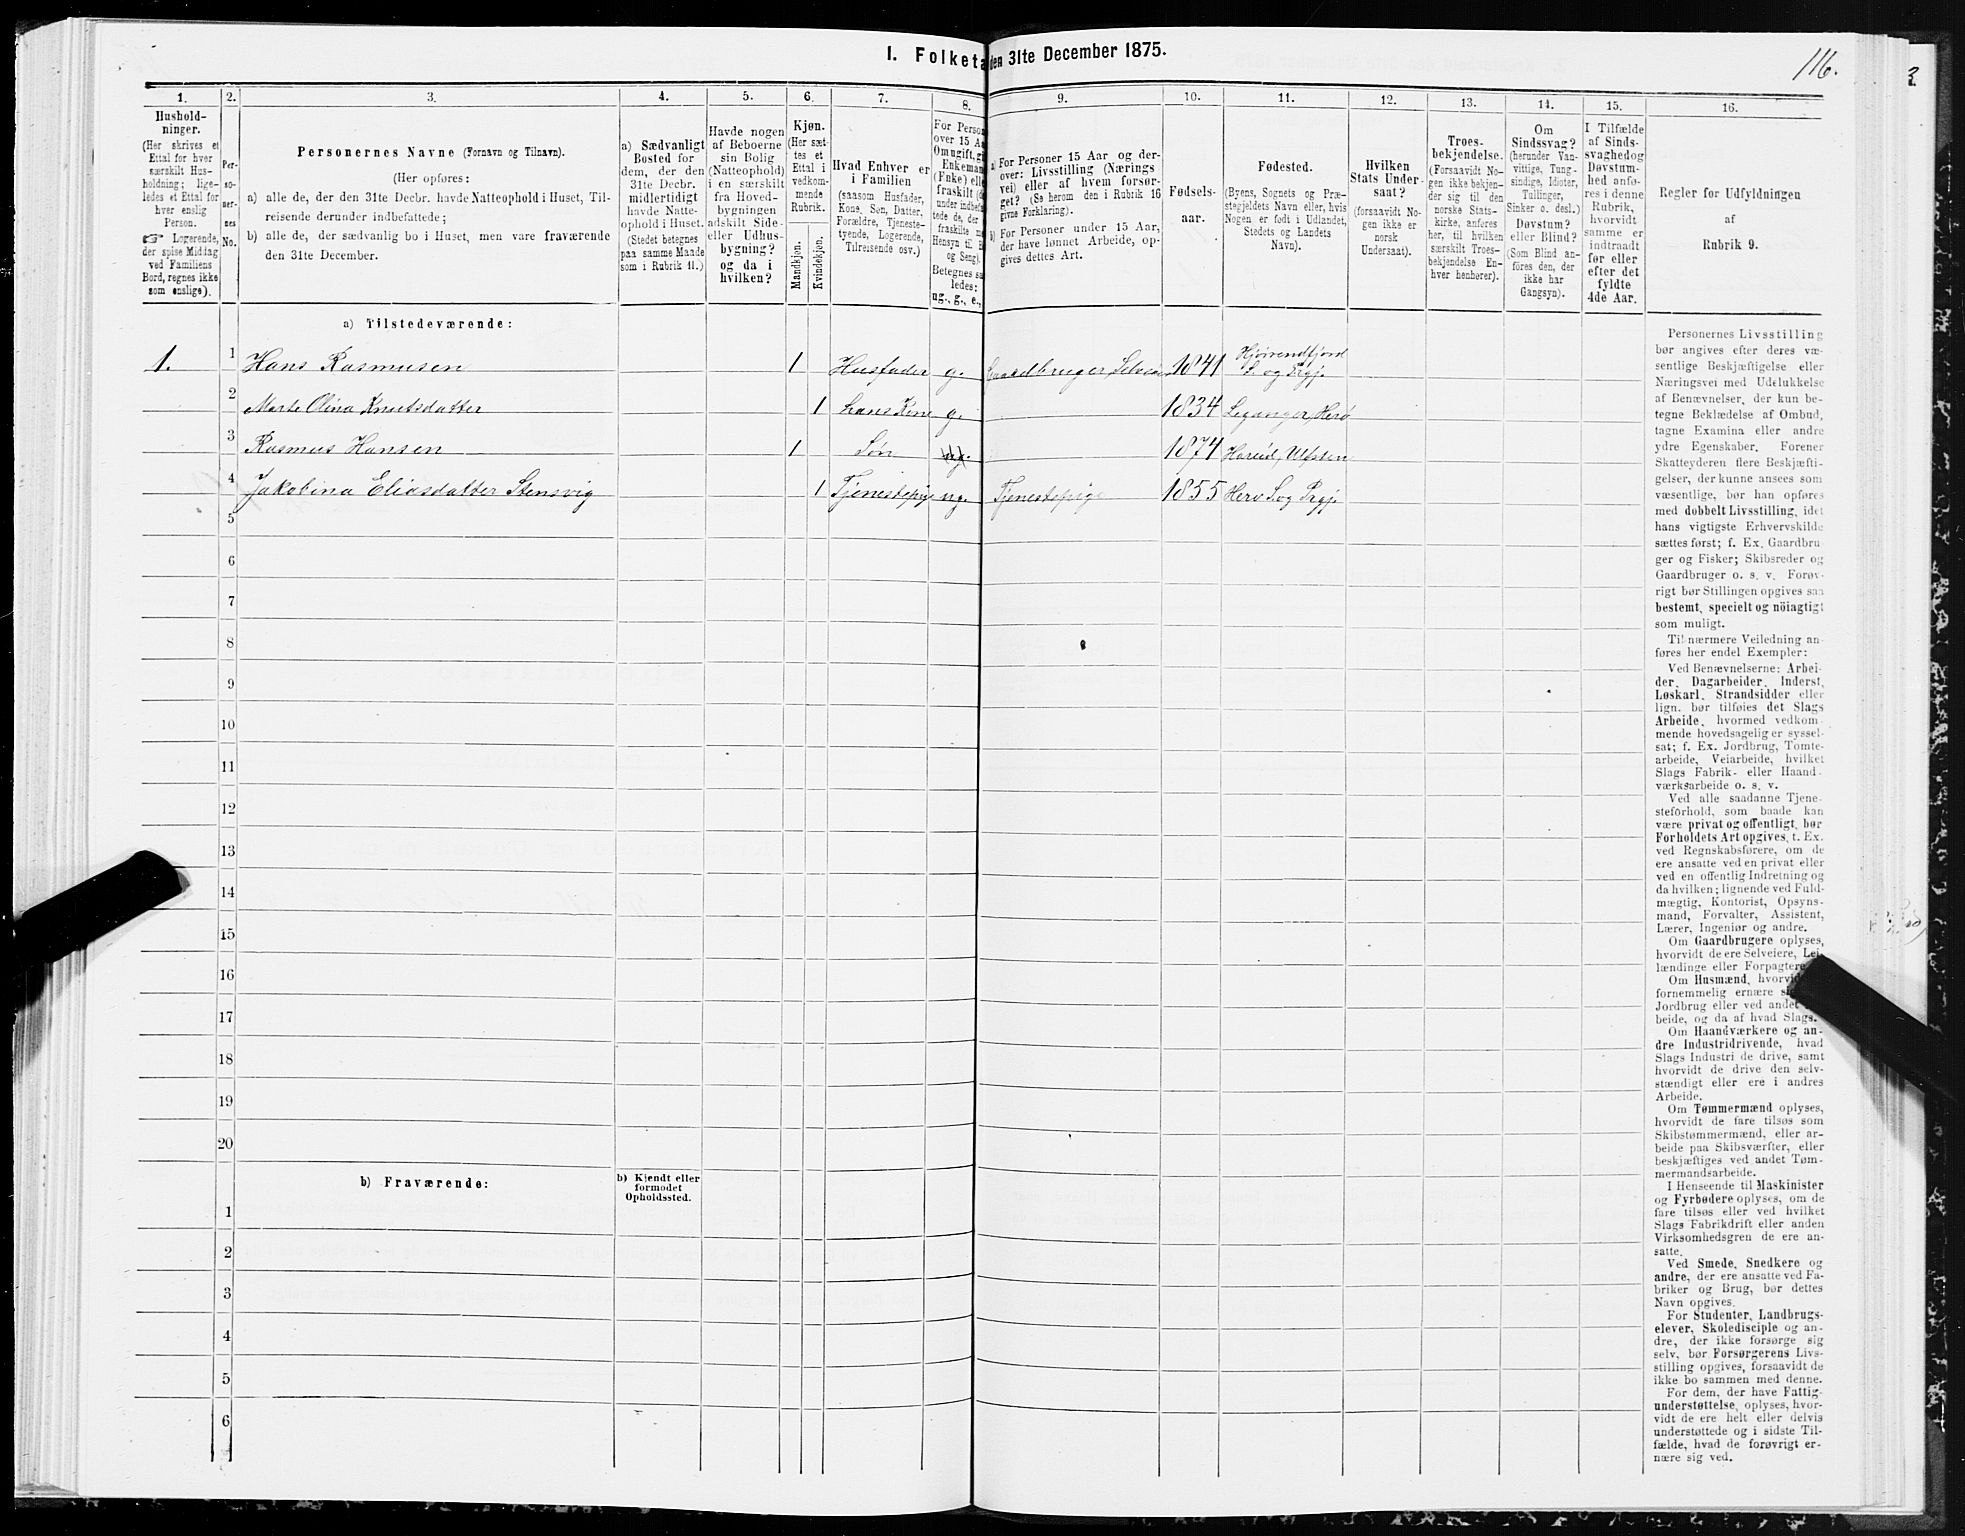 I. Folketa den 31te December 1875.
116.
3
1.
2.
3.
4.
5.
6.
7.
8.
9.
10.
11.
12.
13.
14.
15.
16.
Hushold-
ninger.
(Her skrives et
Ettal for hver
særskilt Hus-
holdning; lige-
ledes et Ettal for
hver enslig
Person.
☞ Logerende,
der spise Middag
ved Familiens
Bord, regnes ikke
som enslige).
Per-
so-
ner-
nes
No.
Personernes Navne (Fornavn og Tilnavn).
(Her opføres:
a) alle de, der den 31te Decbr. havde Natteophold i Huset, Til-
reisende derunder indbefattede;
b) alle de, der sædvanlig bo i Huset, men vare fraværende
den 31te December.
a) Sædvanligt
Bosted for
dem, der den
31te Decbr.
midlertidigt
havde Natte-
ophold i Huset.
(Stedet betegnes
paa samme Maade
som i Rubrik 11.)
Havde nogen
af Beboerne
sin Bolig
(Natteophold)
i en særskilt
fra Hoved-
bygningen
adskilt Side-
eller Udhus-
bygning?
og da i
hvilken?
Kjøn.
(Her sæt-
tes et
Ettal i
vedkom-
mende
Rubrik.
Mandkjøn.
Kvindekjøn.
Hvad Enhver er
i Familien
(saasom Husfader,
Kone, Søn, Datter,
Forældre, Tjeneste-
tyende, Logerende,
Tilreisende osv.)
For Person
over 15 Aa
Omugift, gi
Enkeman
(Enke) elle
fraskilt (d
under indbef
tede de, der e
fraskilte m
Hensyn til B
og Seng).
Betegnes sa
ledes:
ug., g., e.,
a) For Personer 15 Aar og der-
over: Livsstilling (Nærings
vei) eller af hvem forsør-
get? (Se herom den i Rubrik 16
givne Forklaring).
b) For Personer under 15 Aar,
der have lønnet Arbeide, op-
gives dettes Art.
Fødsels-
aar.
Fødested.
(Byens, Sognets og Præ-
stegjeldets Navn eller, hvis
Nogen er født i Udlandet,
Stedets og Landets
Navn).
Hvilken
Stats Under-
saat?
(forsaavidt No-
gen ikke er
norsk
Undersaat).
Troes-
bekjendelse.
(Forsaavidt No-
gen ikke bekjen-
der sig til den
norske Stats-
kirke, anføres
her, til hvilken
særskilt Troes-
bekjendelse En-
hver henhører).
Om
Sindssvag?
(herunder Van-
vittige, Tung-
sindige, Idioter,
Tullinger,
Sinker o. desl.)
Døvstum?
eller Blind?
(Som Blind an-
føres den, der
ikke har
Gangsyn).
I Tilfælde
af Sinds-
svaghedog
Døvstum-
hed anfø-
res i denne
Rubrik,
hvorvidt
samme er
indtraadt
før eller
efter det
fyldte
4de Aar.
Regler for Udfyldningen
af
Rubrik 9.
a) Tilstedeværende:
1. 1 Hans Rasmusen 1 Husfader g. Gaardbruger, Selveier 1841 Hjørendfjord S. og Prgj.
2 Marte Olina Knutsdatter 1 hans Kone g. 1834 Leganger, Herø
3 Rasmus Hansen 1 Søn ug. 1874 Hareid, Ulfsten
4 Jakobina Eliasdatter Stensvig 1 Tjenestepige ug. Tjenestepige 1855 Herø S og Prgj.
5
6
7
8
9
10
11
12
13
14
15
16
17
18
19
20
b) Fraværende:
b) Kjendt eller
formodet
Opholdssted.
1
2
3
4
5
6
Personernes Livsstilling
bør angives efter deres væ-
sentlige Beskjæftigelse eller
Næringsvei med Udelukkelse
af Benævnelser, der kun be-
tegne Beklædelse af Ombud,
tagne Examina eller andre
ydre Egenskaber. Forener
Skatteyderen flere Beskjæfti-
gelser, der kunne ansees som
væsentlige, bør han opføres
med dobbelt Livsstilling, idet
hans vigtigste Erhvervskilde
sættes først; f. Ex. Gaardbru-
ger og Fisker; Skibsreder og
Gaardbruger o. s. v. Forøv-
rigt bør Stillingen opgives saa
bestemt, specielt og nöiagtigt
som muligt.
Til nærmere Veiledning an-
føres her endel Exempler:
Ved Benævnelserne: Arbei-
der, Dagarbeider, Inderst,
Løskarl, Strandsidder eller
lign. bør tilføies det Slags
Arbeide, hvormed vedkom-
mende hovedsagelig er syssel-
sat; f. Ex. Jordbrug, Tomte-
arbeide, Veiarbeide, hvilket
Slags Fabrik- eller Haand-
værksarbeide o. s. v.
Ved alle saadanne Tjene-
steforhold, som baade kan
være privat og offentligt, bør
Forholdets Art opgives, t. Ex.
ved Regnskabsførere, om de
ere ansatte ved en privat eller
ved en offentlig Indretning og
da hvilken; lignende ved Fuld-
mægtig, Kontorist, Opsyns-
mand, Forvalter, Assistent,
Lærer, Ingeniør og andre.
Om Gaardbrugere oplyses,
hvorvidt de ere Selveiere, Lei-
lændinge eller Forpagtere
Om Husmænd, hvorvid
fornemmelig ernære si
Jordbrug eller ved andet
beide, og da af hvad Slags.
Om Haandværkere og an-
dre Industridrivende, hvad
Slags Industri de drive, samt
hvorvidt de drive den selv-
stændigt eller ere i andres
Arbeide.
Om Tømmermænd oplyses,
hvorvidt de fare tilsøs som
Skibstømmermænd, eller ar-
beide paa Skibsværfter, eller
beskjæftiges ved andet Tøm-
mermandsarbeide.
I Henseende til Maskinister
og Fyrbødere oplyses, om de
fare tilsøs eller ved hvilket
Slags Fabrikdrift eller anden
Virksomhedsgren de ere an-
satte.
Ved Smede, Snedkere og
andre, der ere ansatte ved Fa-
briker og Brug, bør dettes
Navn opgives.
For Studenter, Landbrugs-
elever, Skoledisciple og an-
dre, der ikke forsørge sig
selv, bør Forsørgerens Livs-
stilling opgives, forsaavidt de
ikke bo sammen med denne.
For dem, der have Fattig-
understøttelse, oplyses, hvor-
vidt de ere helt eller delvis
understøttede og i sidste Til-
fælde, hvad de forøvrigt er-
nære sig ved.